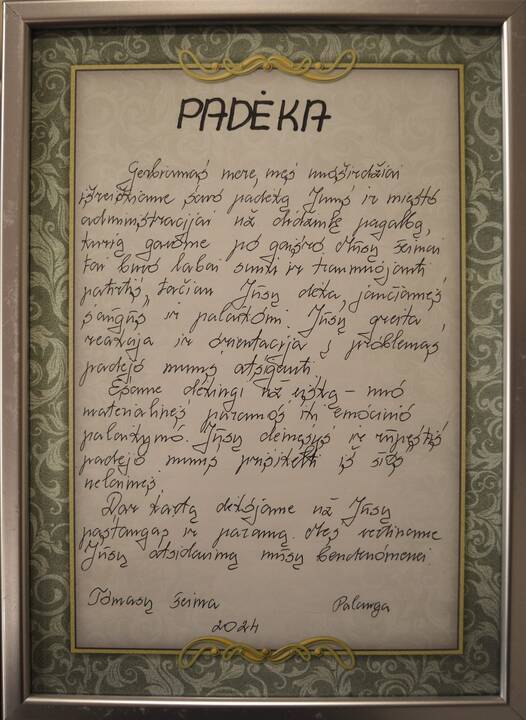 PADĖKA
Gerbiamas mere, mes nuoširdžiai
išreiškiame savo padėką Jums ir miesto
administracijai už didžiulę pagalbą,
kurią gavome po gaisro. Mūsų šeimai
tai buvo labai sunki ir traumuojanti
patirtis, tačiau Jūsų dėka, jaučiamės
saugūs ir palaikomi. Jūsų greita
reakcija ir orientacija į problemas
padėjo mums atsigauti.
Esame dėkingi už viską – nuo
materialinės paramos iki emocinio
palaikymo. Jūsų dėmesys ir rūpestis
padėjo mums prisikelti iš šios
nelaimės.
Dar kartą dėkojame už Jūsų
pastangas ir paramą. Mes vertiname
Jūsų atsidavimą mūsų bendruomenei.
Tomasų šeima Palanga
2024